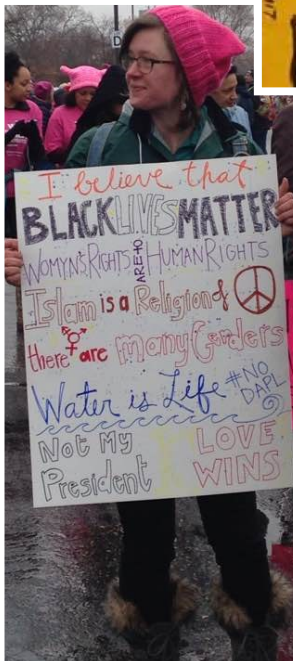 I believe that
BLACK LIVES MATTER
WOMYN'S RIGHTS ARE HUMAN RIGHTS
Islam is a Religion of
there are many Genders
Water is Life #NO DAPL
Not My President
LOVE WINS